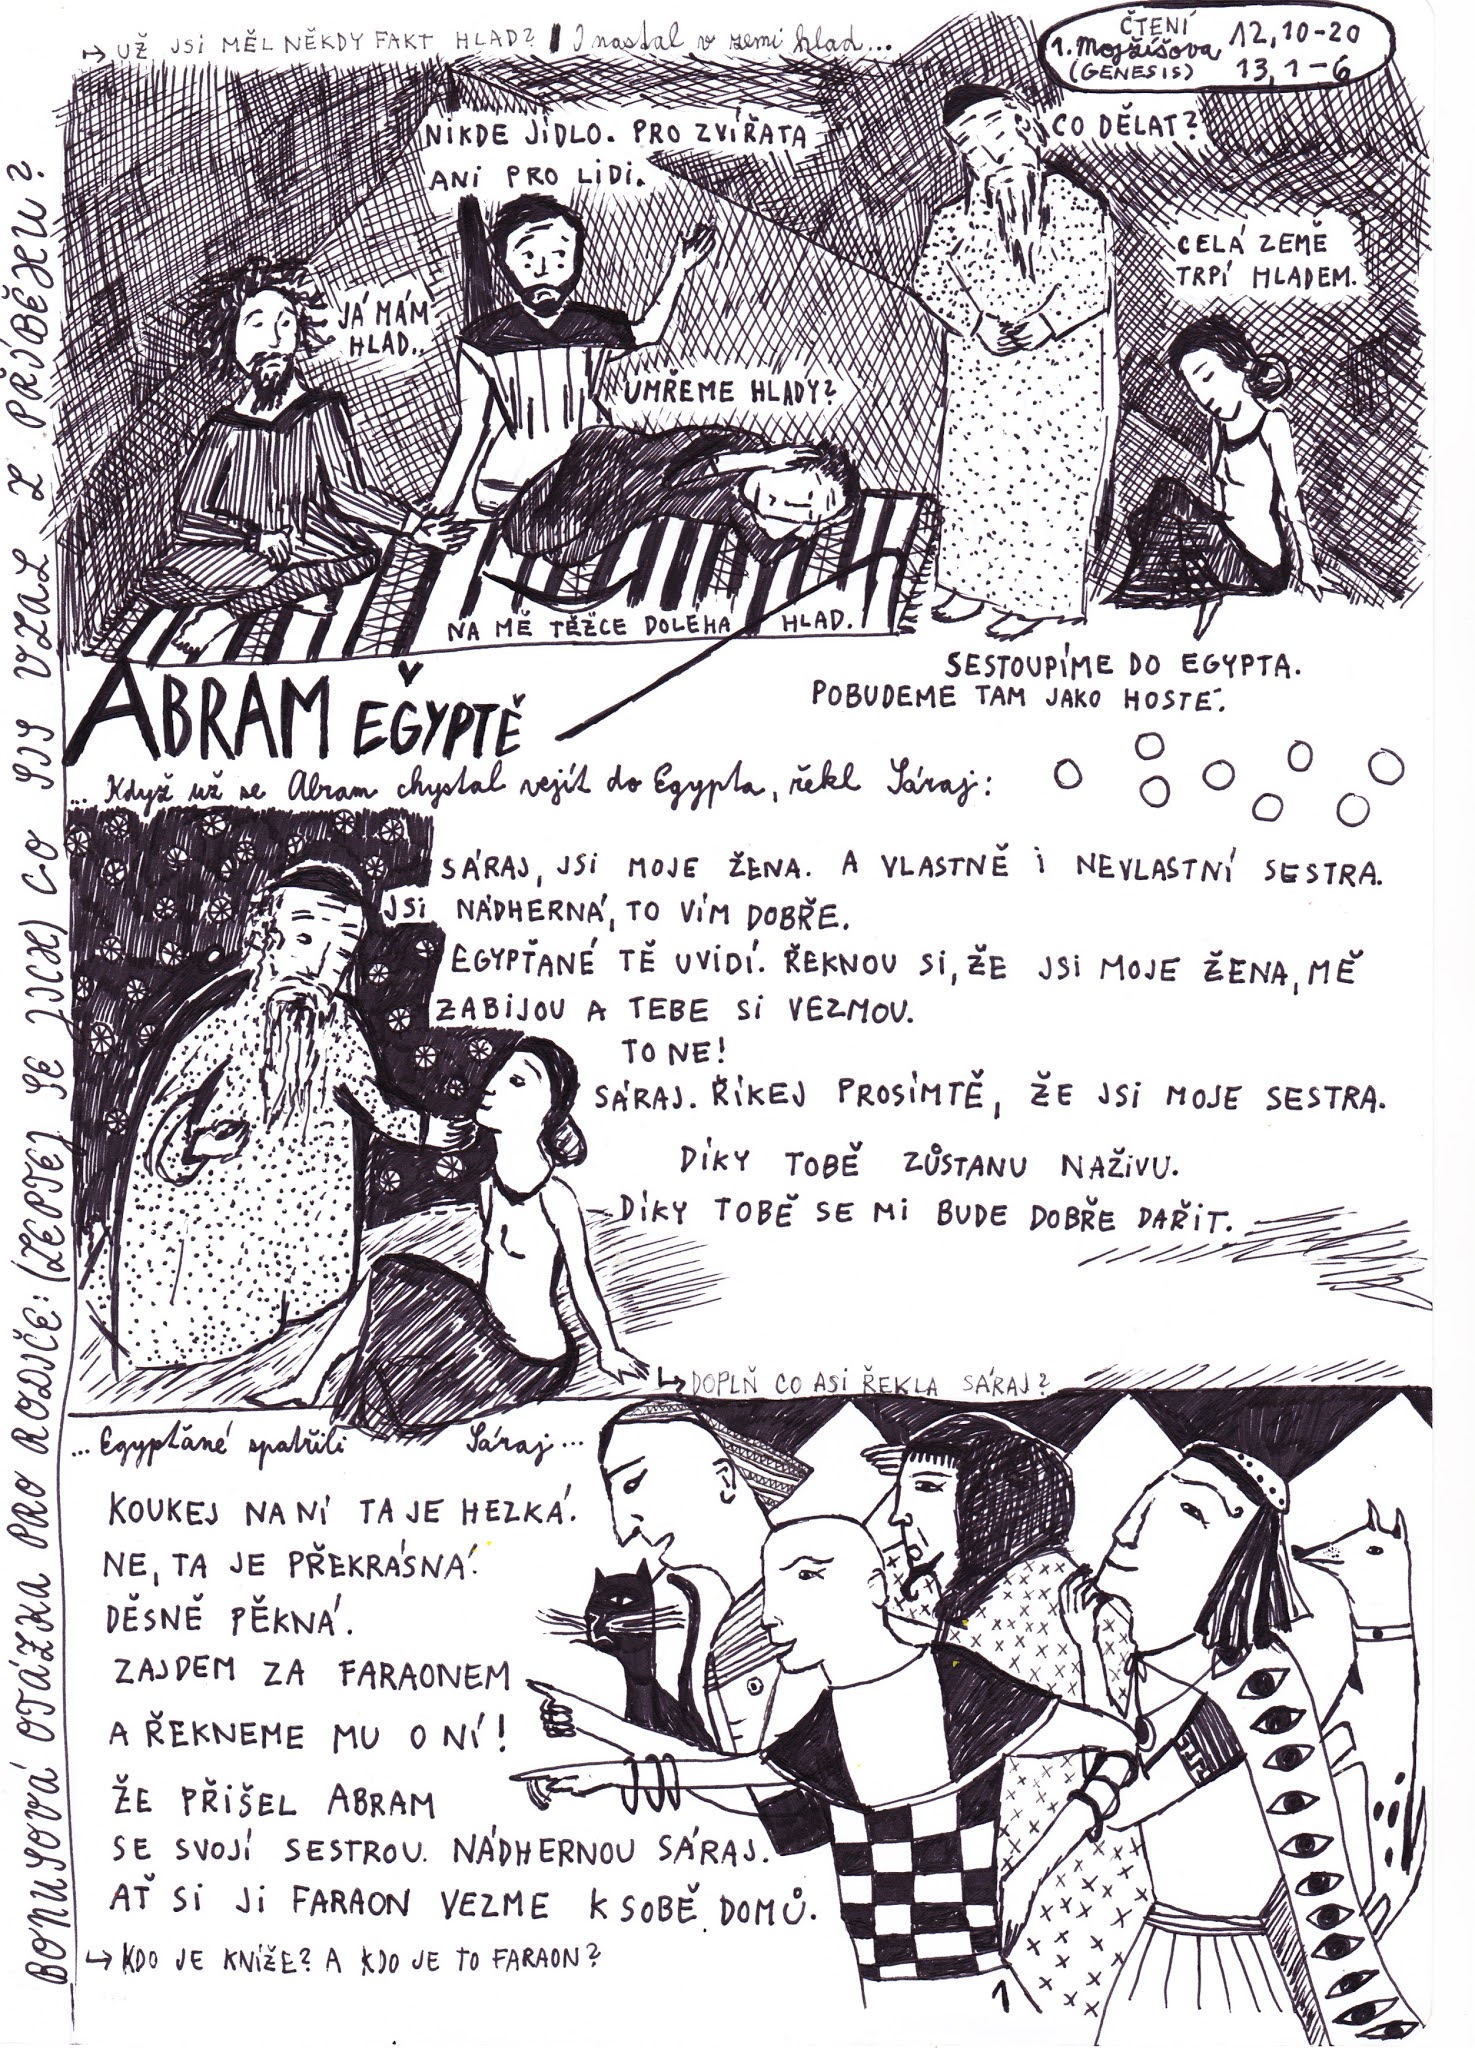 ↳ UŽ JSI MĚL NĚKDY FAKT HLAD? I nastal v zemi hlad...
ČTENÍ
1. Mojžíšova 12,10-20
(GENESIS) 13,1-6
NIKDE JÍDLO. PRO ZVÍŘATA
ANI PRO LIDI.
CO DĚLAT?
CELÁ ZEMĚ
TRPÍ HLADEM.
JÁ MÁM
HLAD..
UMŘEME HLADY?
NA MĚ TĚŽCE DOLÉHÁ HLAD.
SESTOUPÍME DO EGYPTA.
POBUDEME TAM JAKO HOSTÉ.
ABRAM V EGYPTĚ
... Když už se Abram chystal vejít do Egypta, řekl Sáraj:
SÁRAJ, JSI MOJE ŽENA. A VLASTNĚ I NEVLASTNÍ SESTRA.
JSI NÁDHERNÁ, TO VÍM DOBŘE.
EGYPŤANÉ TĚ UVIDÍ. ŘEKNOU SI, ŽE JSI MOJE ŽENA, MĚ
ZABIJOU A TEBE SI VEZMOU.
TO NE!
SÁRAJ. ŘÍKEJ PROSÍMTĚ, ŽE JSI MOJE SESTRA.
DÍKY TOBĚ ZŮSTANU NAŽIVU.
DÍKY TOBĚ SE MI BUDE DOBŘE DAŘIT.
↳ DOPLŇ CO ASI ŘEKLA SÁRAJ?
... Egypťané spatřili Sáraj...
KOUKEJ NA NÍ TA JE HEZKÁ.
NE, TA JE PŘEKRÁSNÁ.
DĚSNĚ PĚKNÁ.
ZAJDEM ZA FARAONEM
A ŘEKNEME MU O NÍ!
ŽE PŘIŠEL ABRAM
SE SVOJÍ SESTROU. NÁDHERNOU SÁRAJ.
AŤ SI JI FARAON VEZME K SOBĚ DOMŮ.
↳ KDO JE KNÍŽE? A KDO JE TO FARAON?
1
BONUSOVÁ OTÁZKA PRO RODIČE: (ZEPTEJ SE JICH) CO SIS VZAL Z PŘÍBĚHU?